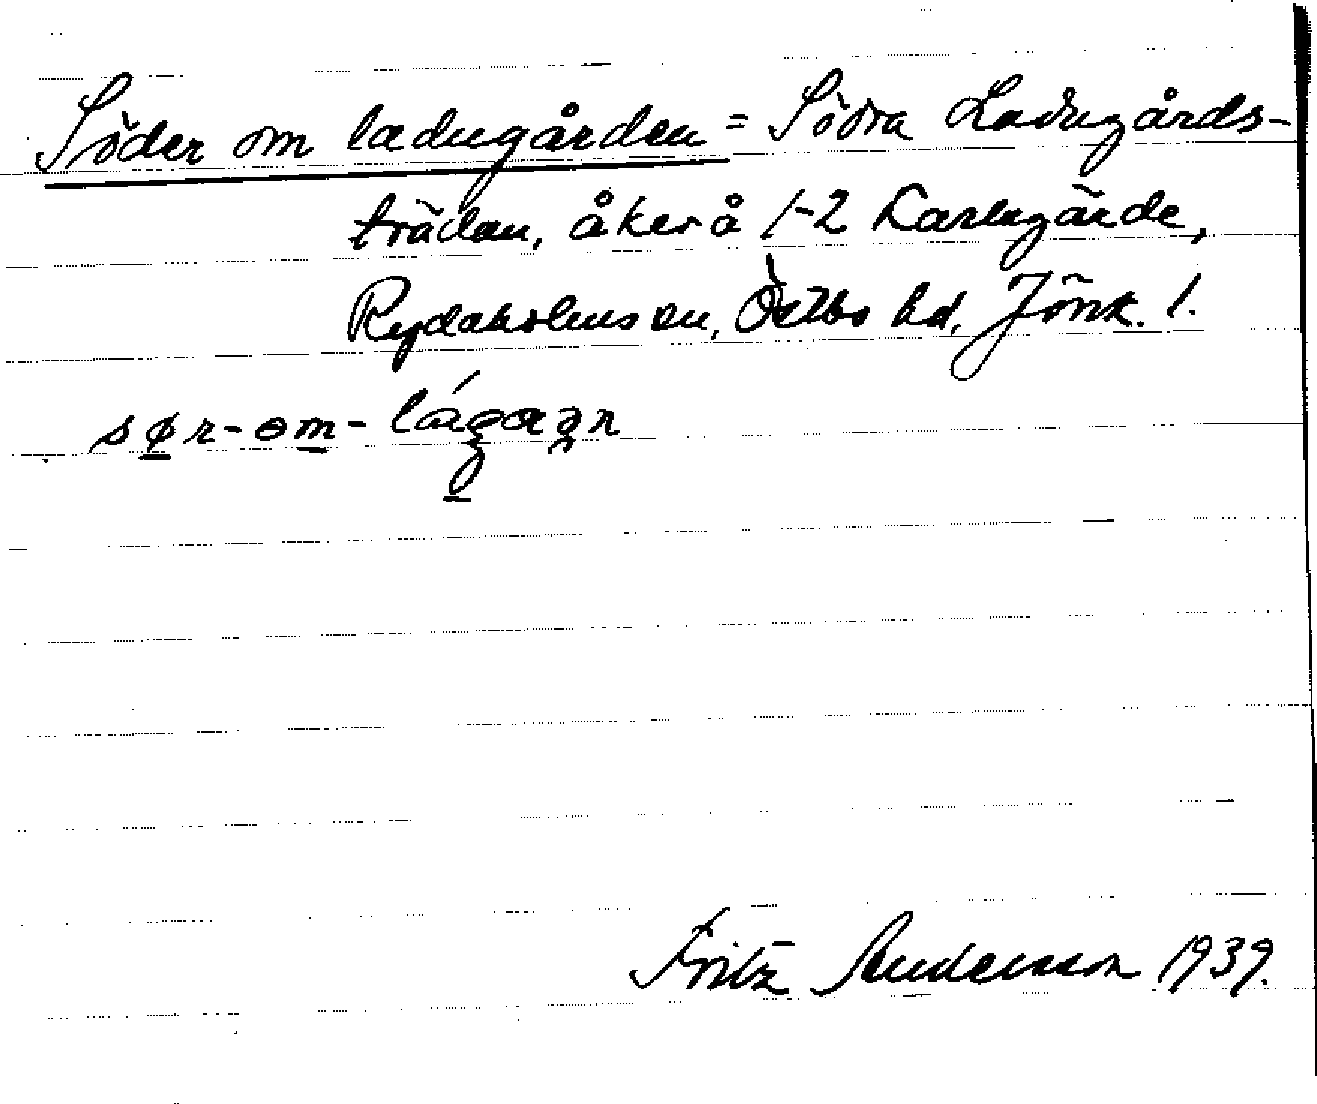 Söder om ladugården = Södra Ladugårds-
trädan, åker å 1-2 Karlsgärde,
Rydaholms sn, Östbo hd, Jönk. l.
sør-om-
Fritz Andersson 1939.